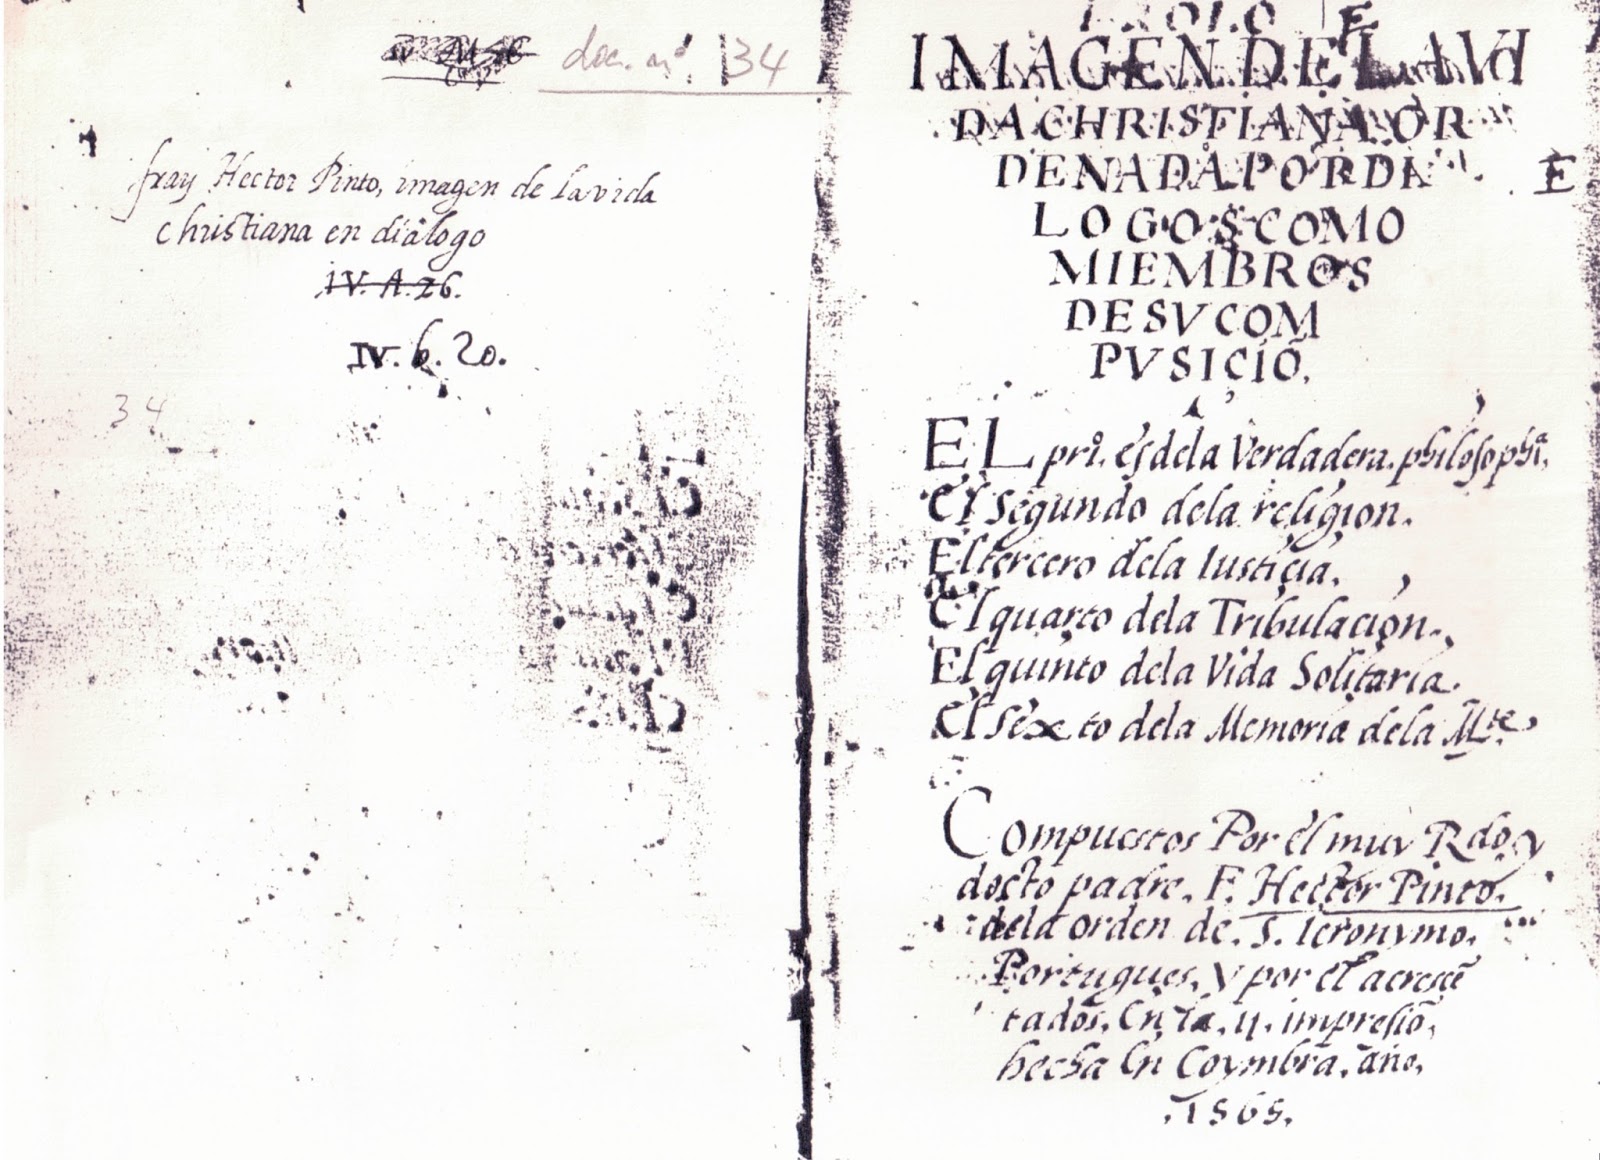 doc. nº. 34
fray Hector Pinto, imagen de la vida
christiana en dialogo
IV. A. 26.
IV. b. 20.
34
IMAGEN DE LA VI
DA CHRISTIANA OR
DENADA POR DA
E
LOGOS COMO
MIEMBROS
DE SV COM
PVSICIÕ.
EL pri.º es dela Verdadera philosophi.ª
El segundo dela religion.
El tercero dela Iusticia.
El quarto dela Tribulacion.
El quinto dela Vida Solitaria.
El sexto dela Memoria dela M.te
Compuestos Por el muy Rdo. y
docto padre. F. Hector Pinto.
dela orden de. S. Ieronymo.
Portugues, y por el acrescẽ
tados. En la. 11. impresiõ,
hecha En Coymbra. año.
.1565.